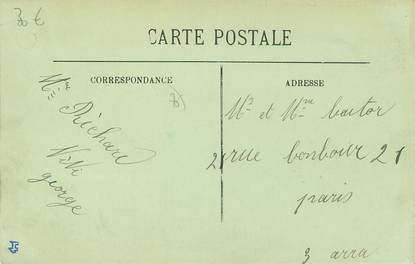 30 €
CARTE POSTALE
CORRESPONDANCE
ADRESSE
Mme Richard
Vivi
george
Mr et Mme bactor
21 rue bonbour 21
paris
3 arra